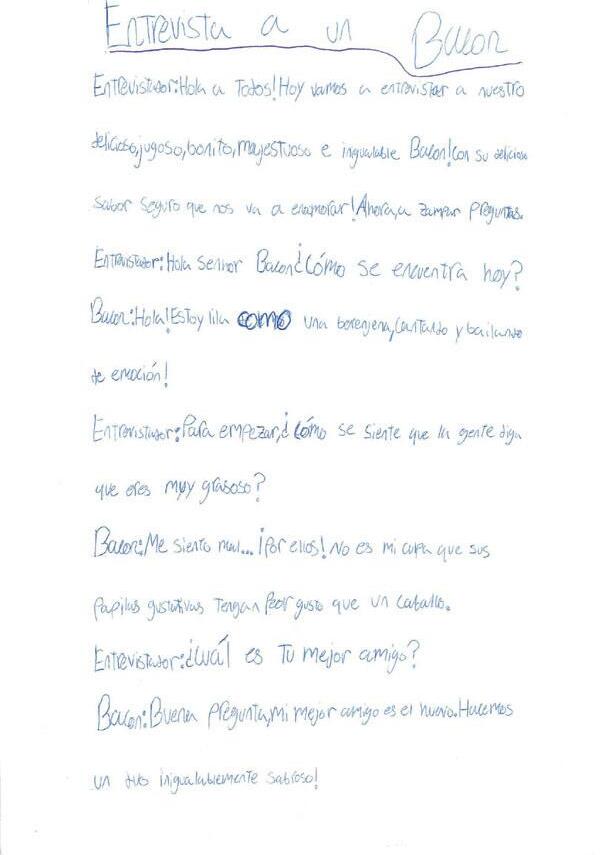 Entrevista a un Bacon
Entrevistador: Hola a Todos! Hoy vamos a entrevistar a nuestro
delicioso, jugoso, bonito, majestuoso e inigualable Bacon! Con su delicioso
sabor seguro que nos va a enamorar! Ahora, a zampar preguntas.
Entrevistador: Hola senhor Bacon ¿Cómo se encuentra hoy?
Bacon: Hola! Estoy lila como una berenjena, Cantando y bailando
de emoción!
Entrevistador: Para empezar, ¿cómo se siente que la gente diga
que eres muy grasoso?
Bacon: Me siento mal... ¡Por ellos! No es mi culpa que sus
papilas gustativas Tengan Peor gusto que un caballo.
Entrevistador: ¿Cuál es Tu mejor amigo?
Bacon: Buena Pregunta, mi mejor amigo es el huevo. Hacemos
un duo inigualablemente sabroso!